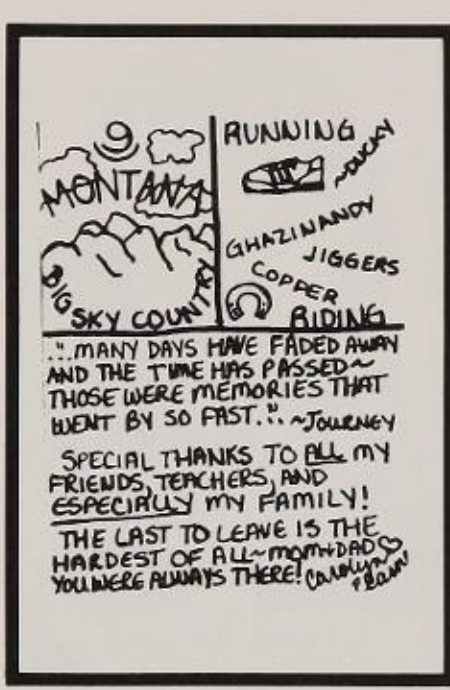 MONTANA
BIG SKY COUNTRY
RUNNING
~DUCKY
GHAZINANDY
JIGGERS
COPPER
RIDING
."..MANY DAYS HAVE FADED AWAY
AND THE TIME HAS PASSED~
THOSE WERE MEMORIES THAT
WENT BY SO FAST.". ~JOURNEY
SPECIAL THANKS TO ALL MY
FRIENDS, TEACHERS, AND
ESPECIALLY MY FAMILY!
THE LAST TO LEAVE IS THE
HARDEST OF ALL~MOM+DAD
YOU WERE ALWAYS THERE! Carolyn